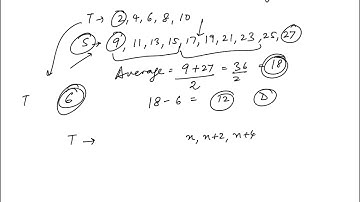 T → 2, 4, 6, 8, 10
S → 9, 11, 13, 15, 17, 19, 21, 23, 25, 27
Average = 9+27/2 = 36/2 = 18
T 6 18-6 = 12 D
T → n, n+2, n+4